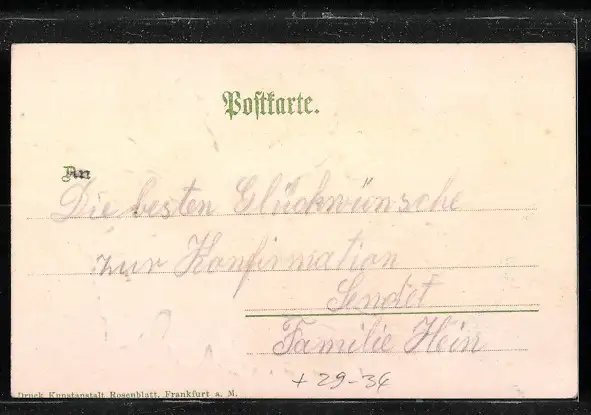 Postkarte.
An
Die besten Glückwünsche
zur Konfirmation
Sendet
Familie Hein
+ 29-34
Druck Kunstanstalt Rosenblatt, Frankfurt a. M.